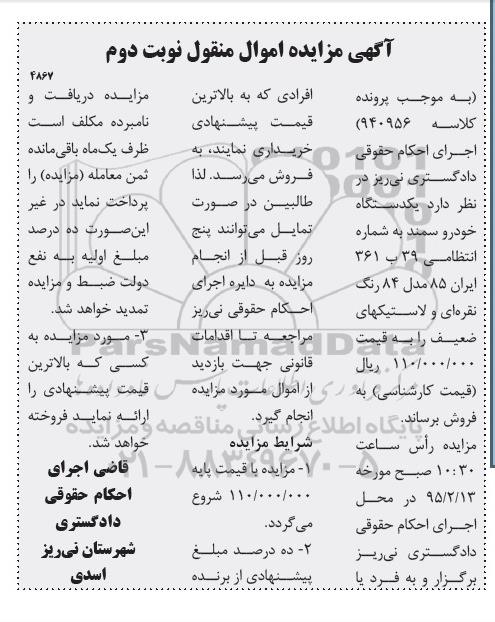 آگهی مزایده اموال منقول نوبت دوم
۴۸۶۷
(بـه موجـب پرونده
کلاسـه ۹۴۰۹۵۶)
اجـرای احکام حقوقی
دادگسـتری نی‌ریز در
نظر دارد یکدسـتگاه
خودرو سمند به شماره
انتظامـی ۳۹ ب ۳۶۱
ایران ۸۵ مدل ۸۴ رنگ
نقره‌ای و لاسـتیکهای
ضعیـف را بـه قیمت
۱۱۰/۰۰۰/۰۰۰ ریال
(قیمت کارشناسی) به
فروش برساند.
مزایده رأس ساعت
۱۰:۳۰ صبـح مورخه
۹۵/۲/۱۳ در محـل
اجـرای احکام حقوقی
دادگسـتری نی‌ریـز
برگـزار و به فـرد یا
افرادی که به بالاترین
قیمـت پیشـنهادی
خریـداری نمایند، به
فـروش می‌رسـد. لذا
طالبیـن در صـورت
تمایـل می‌توانند پنج
روز قبـل از انجـام
مزایده به دایره اجرای
احـکام حقوقی نی‌ریز
مراجعه تـا اقدامات
قانونی جهـت بازدید
از اموال مـورد مزایده
انجام گیرد.
شرایط مزایده
۱- مزایده با قیمت پایه
۱۱۰/۰۰۰/۰۰۰ شروع
می‌گردد.
۲- ده درصـد مبلـغ
پیشـنهادی از برنده
مزایـده دریافـت و
نامبرده مکلف اسـت
ظرف یک‌ماه باقی‌مانده
ثمن معامله (مزایده) را
پرداخت نماید در غیر
این‌صورت ده درصد
مبلـغ اولیه به نفع
دولت ضبـط و مزایده
تمدید خواهد شد.
۳- مـورد مزایـده به
کسـی کـه بالاترین
قیمت پیشـنهادی را
ارائـه نمایـد فروخته
خواهد شد.
قاضی اجرای
احکام حقوقی
دادگستری
شهرستان نی‌ریز
اسدی
ParsNamadData
پایگاه اطلاع رسانی مناقصه و مزایده
۰۲۱-۸۸۳۴۹۶۷۰-۵